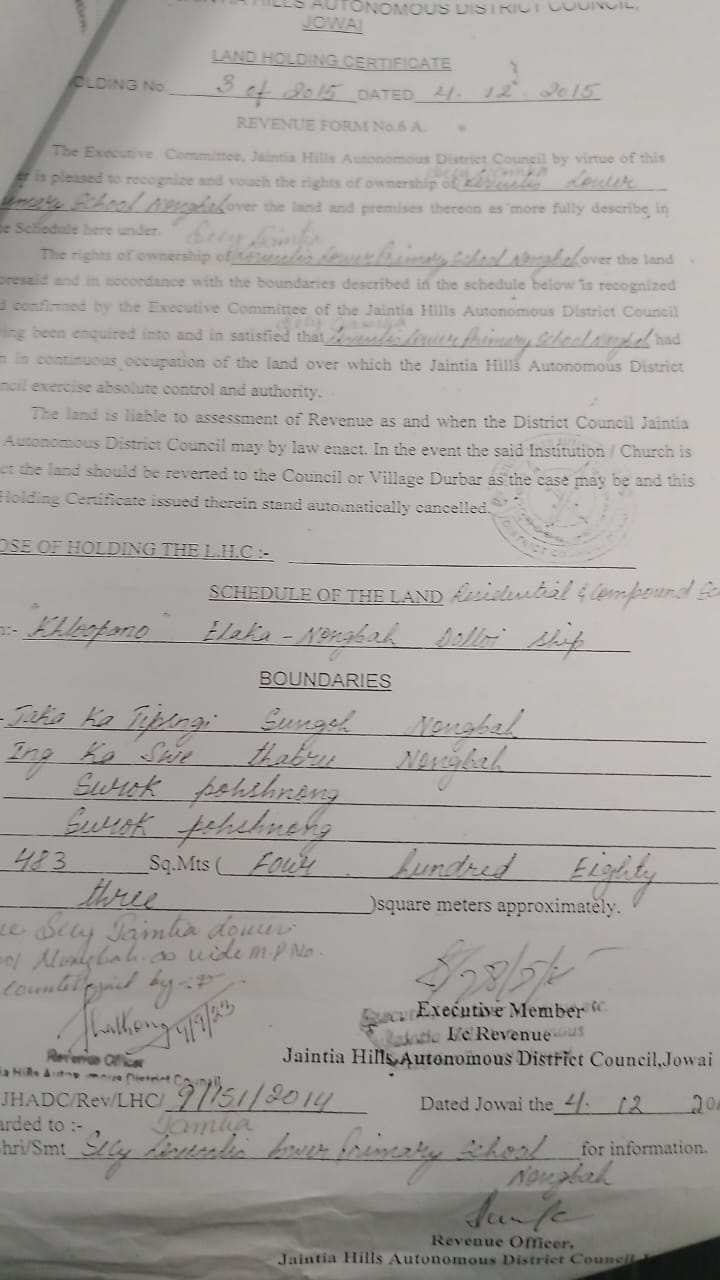 HILLS AUTONOMOUS DISTRICT COUNCIL,
JOWAI
LAND HOLDING CERTIFICATE
OLDING No. 3 of 2015 DATED 4. 12. 2015
REVENUE FORM No.6 A.
The Executive Committee, Jaintia Hills Autonomous District Council by virtue of this
er is pleased to recognize and vouch the rights of ownership of Lower
Primary School Nongbah over the land and premises thereon as more fully describe in
e Schedule here under. Secy Jaintia
The rights of ownership of Lower Primary School Nongbah over the land
oresaid and in accordance with the boundaries described in the schedule below is recognized
d confirmed by the Executive Committee of the Jaintia Hills Autonomous District Council
ing been enquired into and in satisfied that Lower Primary School Nongbah had
n in continuous occupation of the land over which the Jaintia Hills Autonomous District
ncil exercise absolute control and authority.
The land is liable to assessment of Revenue as and when the District Council Jaintia
Autonomous District Council may by law enact. In the event the said Institution / Church is
ct the land should be reverted to the Council or Village Durbar as the case may be and this
Holding Certificate issued therein stand automatically cancelled.
OSE OF HOLDING THE L.H.C :-
SCHEDULE OF THE LAND Residential & Compound
:- "Khloopano" Elaka - Nongbah Dolloi ship
BOUNDARIES
Jaka Ka Nongbah
Ing Ka Swe Nongbah
Surok pohshnong
Surok pohshnong
483 Sq.Mts ( Four hundred Eighty
three )square meters approximately.
Secy Jaintia Lower
Nongbah as vide M.P No.
Countersigned by:-
4/9/23
Executive Member
I/c Revenue
Revenue Officer
Jaintia Hills Autonomous District Council,Jowai
ia Hills Autonomous District Council
JHADC/Rev/LHC/ 9/151/2014 Dated Jowai the 4. 12 20
arded to :- Jaintia
hri/Smt Secy Lower Primary School for information.
Nongbah
Revenue Officer,
Jaintia Hills Autonomous District Council